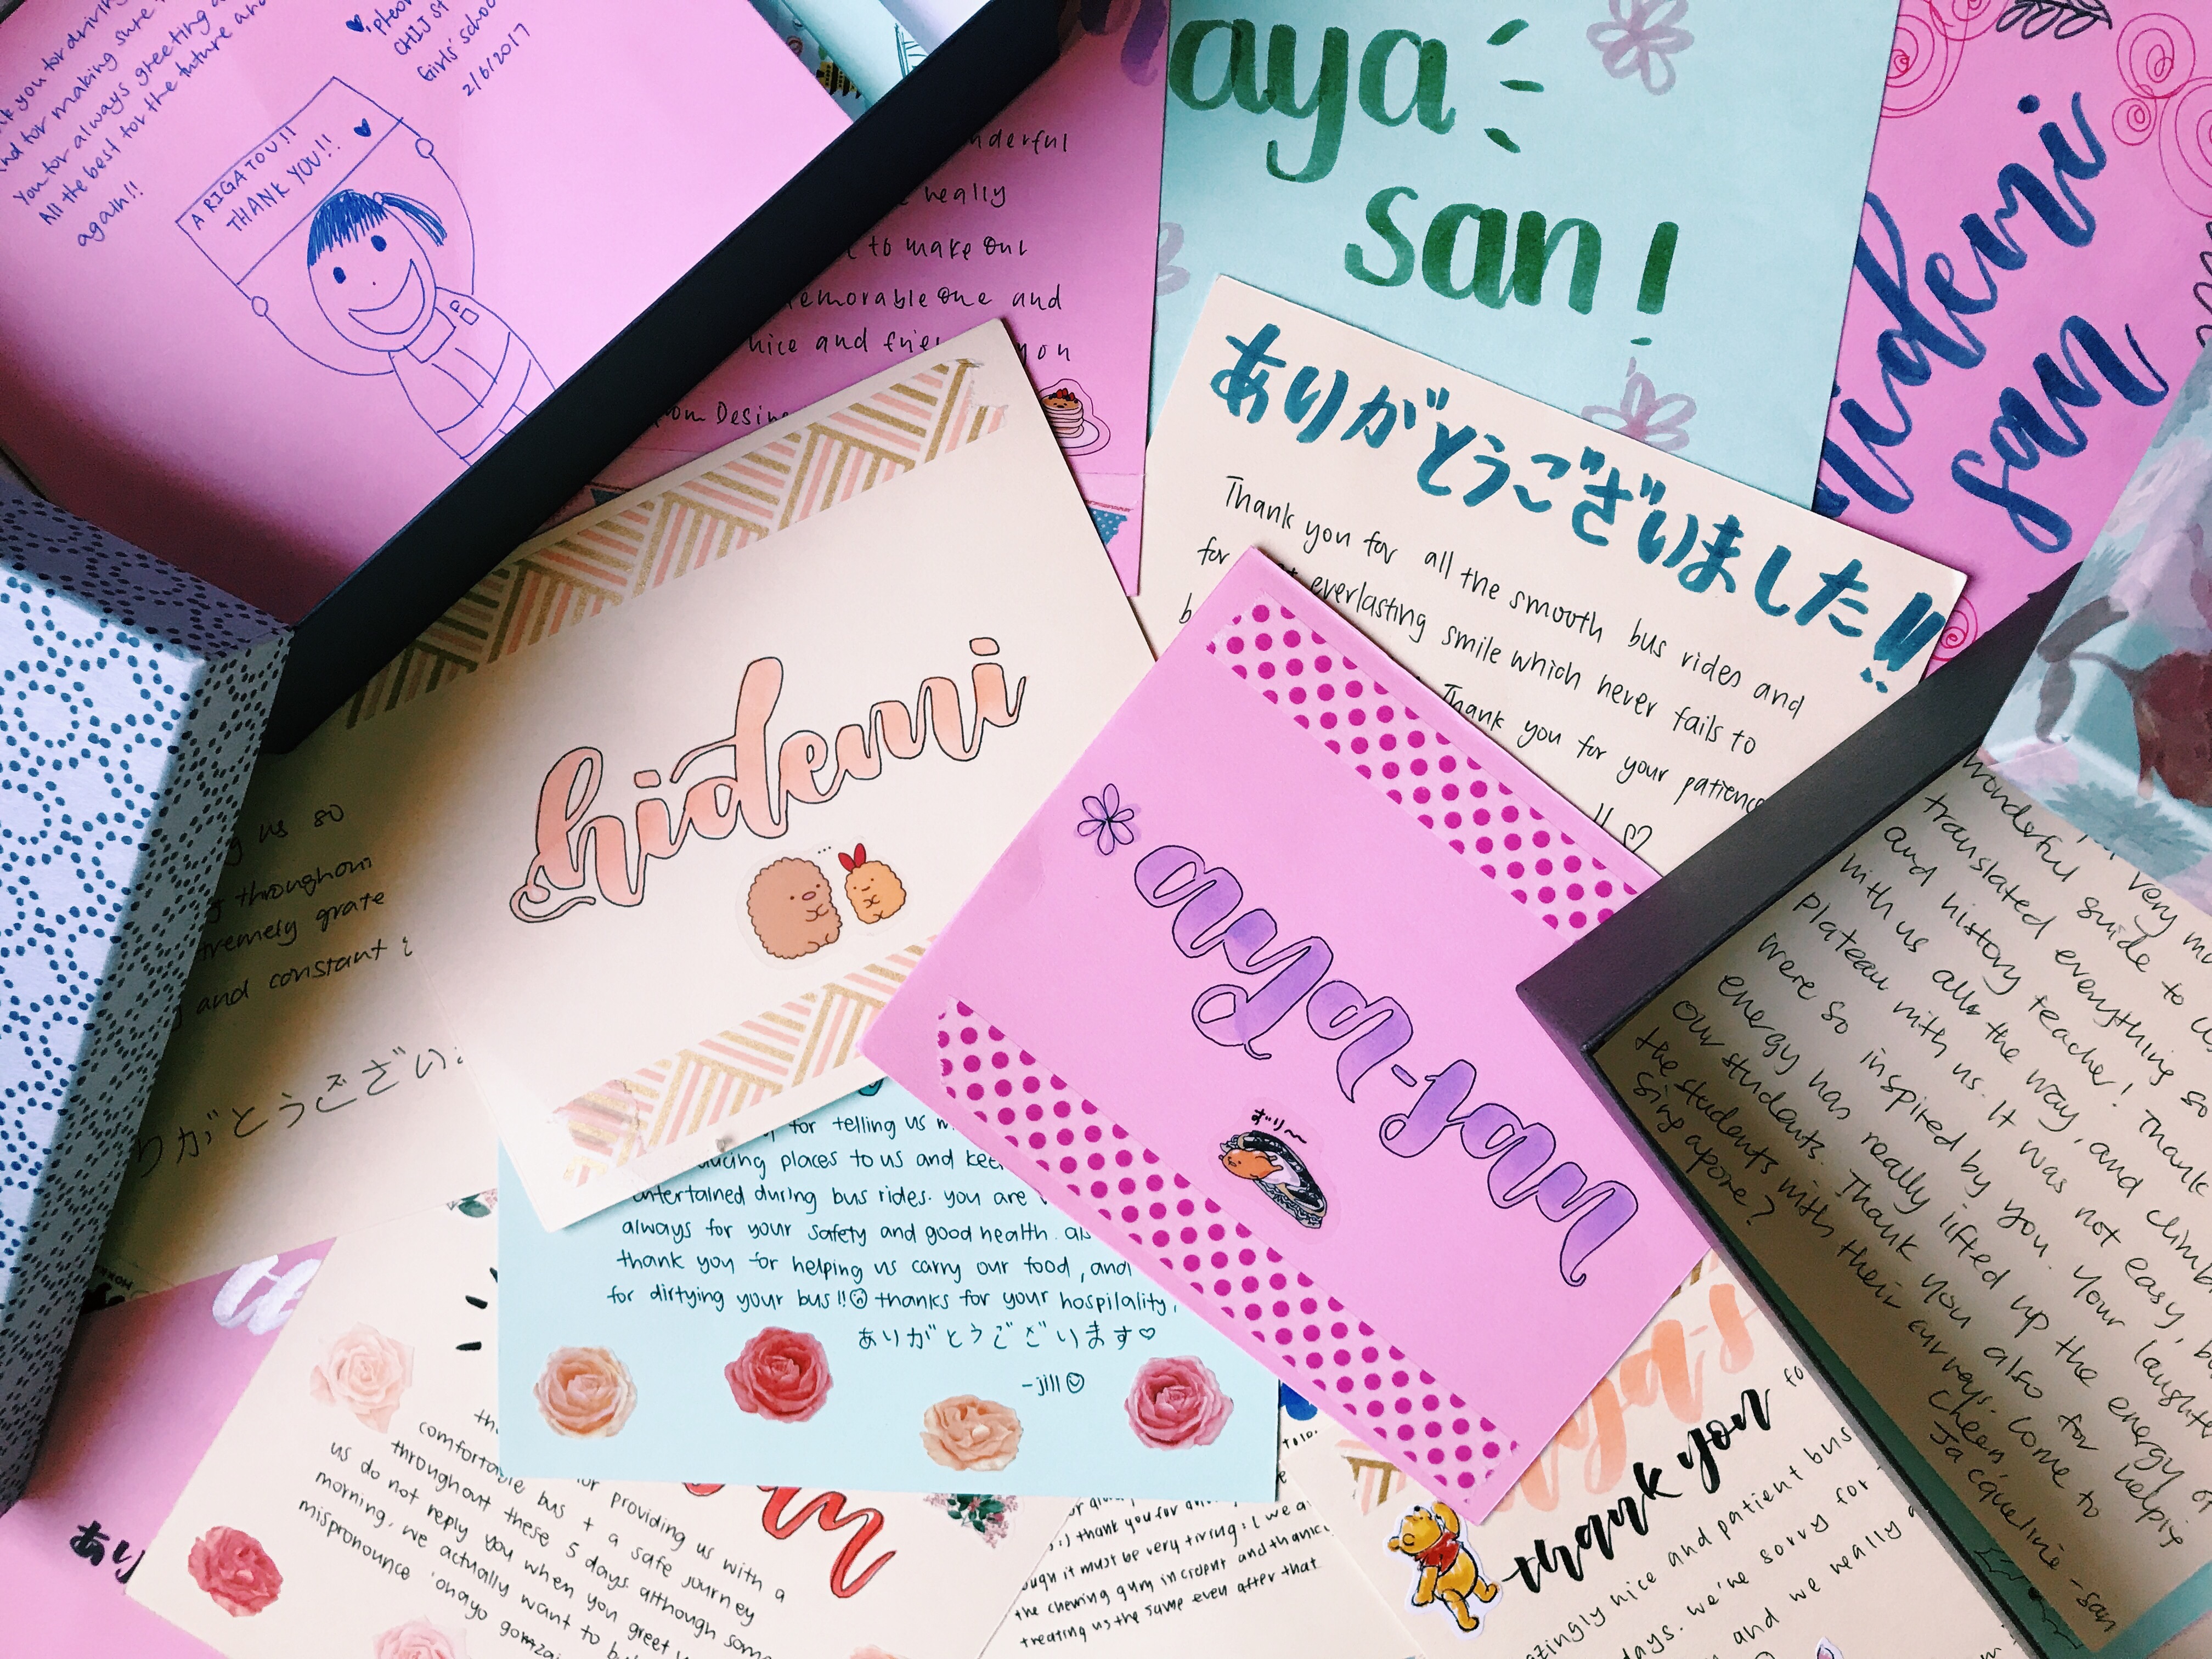 you for driving
and for making sure
You for always greeting
All the best for the future and
again!!
CHIJ St
Girls' school
2/6/2017
ARIGATOU!!
THANK YOU!!
really
to make our
memorable one and
nice and you
aya
san!
hidemi
san
ありがとうございました!!
Thank you for all the smooth bus rides and
for everlasting smile which never fails to
Thank you for your patience
hidemi
us so
throughout
and constant
がとうござい
aya-jan
ずりー
for telling us
places to us and
entertained during bus rides. you are
always for your safety and good health.
thank you for helping us carry our food, and
for dirtying your bus!! thanks for your hospitality,
ありがとうございます♡
-jill
very
wonderful guide to us
translated everything so
and history teacher! Thank
with us all the way, and climb
plateau with us. It was not easy,
were so inspired by you. Your laughter
energy has really lifted up the energy of
our students. Thank you also for helping
the students with their surveys. Come to
Singapore?
Cheen
Jacqueline-san
あり
for providing us with a
comfortable bus + a safe journey
throughout these 5 days. although some
us do not reply you when you greet
morning, we actually want to
mispronounce 'ohayo
thank you for
it must be very tiring :( we
the chewing gum incident and
treating us the same even after that
thank you
nice and patient bus
days. we're sorry for
and we really